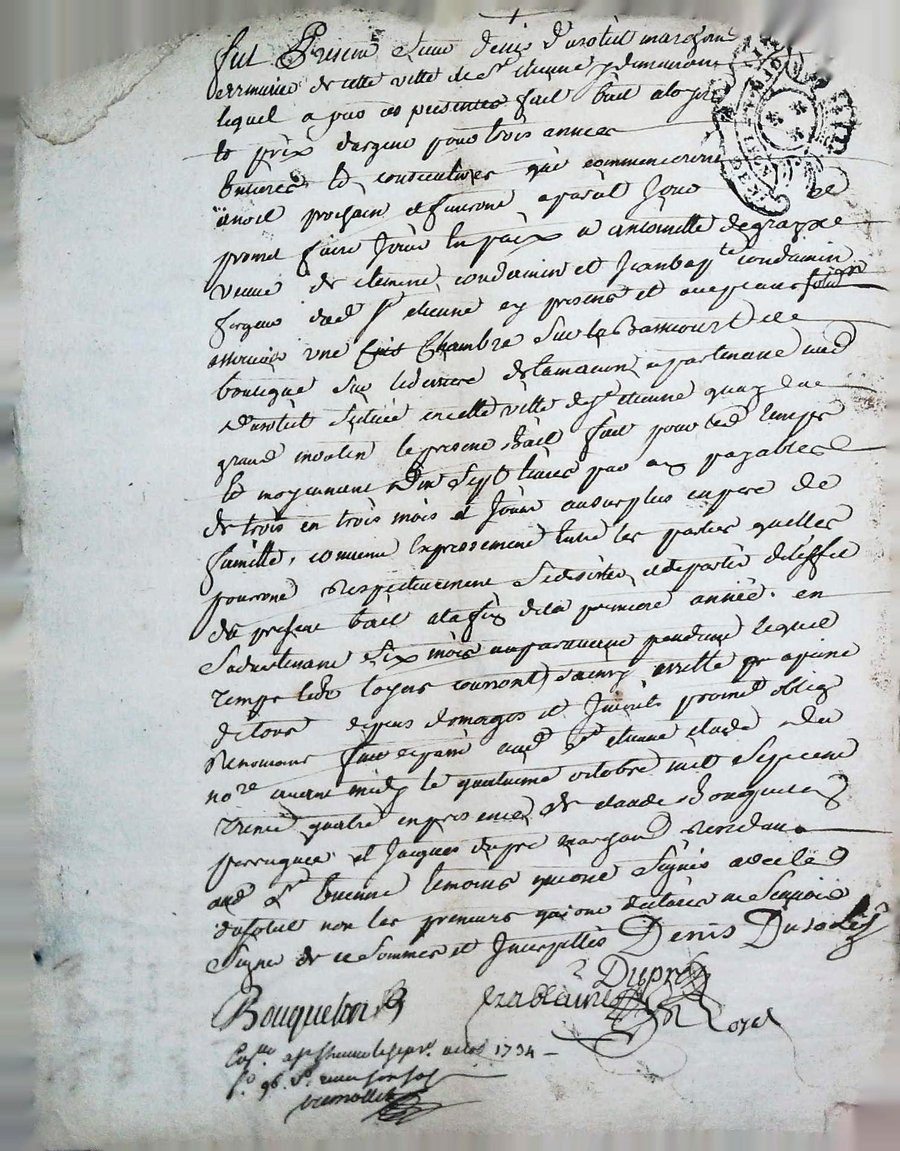 fut Présent Sieur denis Dusolut marchand
armurier de cette ville de St etienne y demeurant
lequel a par ces presentes fait bail a loyer
et prix d'argent pour trois années
Entieres et consecutives qui commenceront
a noel prochain et finiront a pareil Jour
promet faire Jouir En paix a antoinette degraix
veuve de clement condamin et Jeanbapte condamin
forgeur dud St etienne ey presens et acceptans solidrt
une Chambre Sur la Bassecourt
boutique Sur le derriere de la maison apartenant aud
Dusolut Scituée en cette ville de St etienne
grand moulin le present Bail fait pour led temps
et moyennant Sept livres par an payables
de trois en trois mois et Jouir au surplus en pere de
famille, convenu Expressement Entre les parties quelles
pourront Respectivement Se desister et departir de l'effet
du present bail a la fin de la premiere année en
Sadvertissant Six mois auparavant pendant lequel
temps led loyers courront a peine
de tous depens domages et Interets promet oblig
Renoncans fait et passé aud St etienne etude du
nore avant midy le quatorzieme octobre mil Sept cent
Trente quatre en presence de claude Bouqueton
perruquier et Jacques dupré marchand Residans
aud St Etienne temoins qui ont Signés avec led
dusolut non les preneurs qui ont declarés ne Scavoir
Signer de ce Sommés et Interpellés Denis Dusolut
Dupré
Bouqueton
a St Etienne le Sept 1734
fo 96